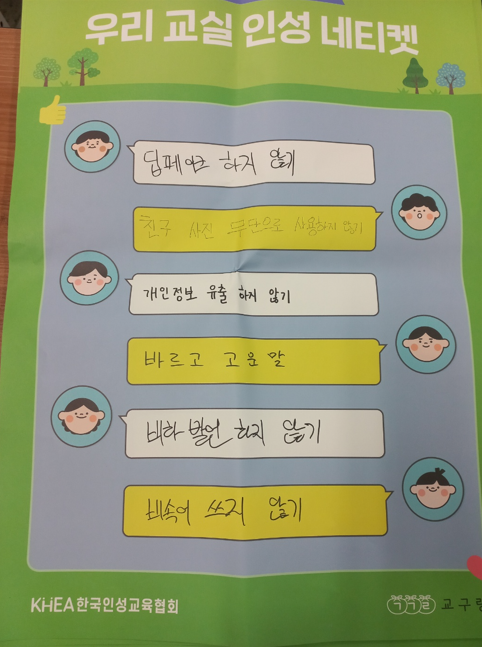 우리 교실 인성 네티켓
딥페이크 하지 않기
친구 사진 무단으로 사용하지 않기
개인정보 유출 하지 않기
바르고 고운 말
비하 발언 하지 않기
비속어 쓰지 않기
KHEA한국인성교육협회
ㄱㄱㄹ 교구